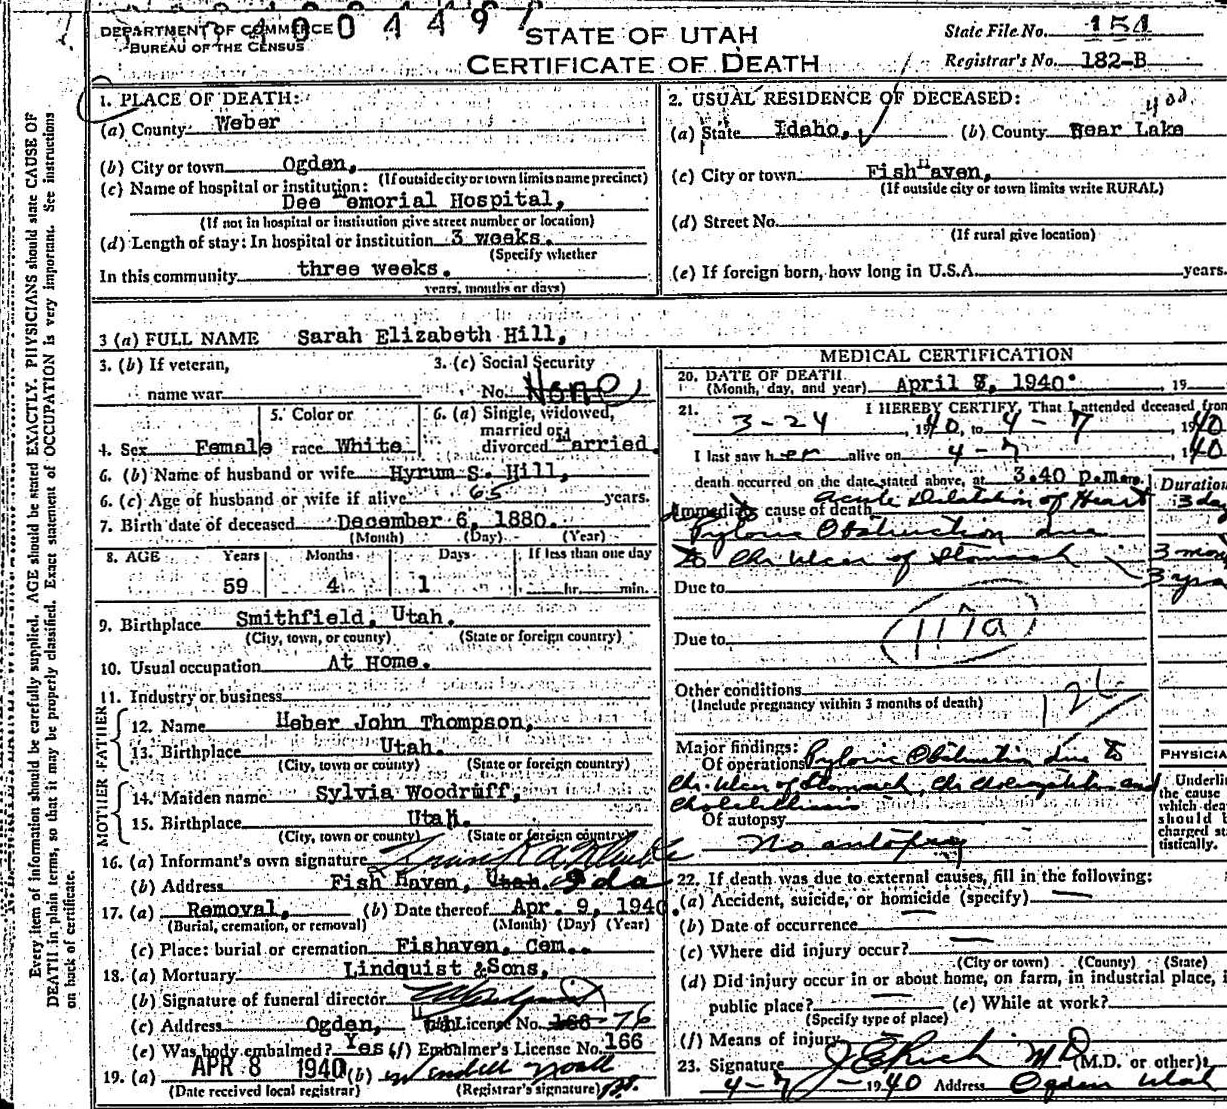 4 0 0 4 4 9
DEPARTMENT OF COMMERCE
BUREAU OF THE CENSUS
STATE OF UTAH
CERTIFICATE OF DEATH
State File No. 154
Registrar's No. 182-B
1. PLACE OF DEATH:
(a) County Weber
(b) City or town Ogden,
(If outside city or town limits name precinct)
(c) Name of hospital or institution:
Dee Memorial Hospital,
(If not in hospital or institution give street number or location)
(d) Length of stay: In hospital or institution 3 weeks.
(Specify whether
In this community three weeks.
years, months or days)
2. USUAL RESIDENCE OF DECEASED:
(a) State Idaho, (b) County Bear Lake
(c) City or town Fish Haven,
(If outside city or town limits write RURAL)
(d) Street No.
(If rural give location)
(e) If foreign born, how long in U.S.A. years.
3 (a) FULL NAME Sarah Elizabeth Hill,
3. (b) If veteran,
name war
3. (c) Social Security
No. None
4. Sex Female
5. Color or
race White
6. (a) Single, widowed,
married or
divorced Married.
6. (b) Name of husband or wife Hyrum S. Hill,
6. (c) Age of husband or wife if alive 65 years.
7. Birth date of deceased December 6, 1880.
(Month) (Day) (Year)
8. AGE Years Months Days If less than one day
59 4 1 hr. min.
9. Birthplace Smithfield, Utah.
(City, town, or county) (State or foreign country)
10. Usual occupation At Home.
11. Industry or business
FATHER
12. Name Heber John Thompson,
13. Birthplace Utah.
(City, town or county) (State or foreign country)
MOTHER
14. Maiden name Sylvia Woodruff,
15. Birthplace Utah.
(City, town or county) (State or foreign country)
16. (a) Informant's own signature
(b) Address Fish Haven, Utah. Ida
17. (a) Removal, (b) Date thereof Apr. 9, 1940.
(Burial, cremation, or removal) (Month) (Day) (Year)
(c) Place: burial or cremation Fishaven, Cem..
18. (a) Mortuary Lindquist & Sons,
(b) Signature of funeral director
(c) Address Ogden, Utah License No. 166-76
(e) Was body embalmed? Yes (f) Embalmer's License No. 166
19. (a) APR 8 1940 (b)
(Date received local registrar) (Registrar's signature)
MEDICAL CERTIFICATION
20. DATE OF DEATH
(Month, day, and year) April 7, 1940. , 19
21. I HEREBY CERTIFY, That I attended deceased from
3-24, 1940, to 4-7, 1940
I last saw her alive on 4-7, 1940
death occurred on the date stated above, at 3.40 p.m.
Immediate cause of death Acute Dilatation of Heart
Duration
3 day
Pyloric Obstruction due
to Chr Ulcer of Stomach
3 mon
3 yrs
Due to
Due to
117a
Other conditions
(Include pregnancy within 3 months of death)
126
Major findings:
Of operations Pyloric Obstruction due to
Chr. Ulcer of Stomach, Chr Cholecystitis and
Cholelithiasis
Of autopsy
No autopsy
PHYSICIA
Underli
the cause
which dea
should b
charged st
tistically.
22. If death was due to external causes, fill in the following:
(a) Accident, suicide, or homicide (specify)
(b) Date of occurrence
(c) Where did injury occur?
(City or town) (County) (State)
(d) Did injury occur in or about home, on farm, in industrial place, i
public place? (e) While at work?
(Specify type of place)
(f) Means of injury
23. Signature J E Rich M D (M.D. or other)
4-7-1940 Address Ogden Utah
Every item of information should be carefully supplied. AGE should be stated EXACTLY. PHYSICIANS should state CAUSE OF
DEATH in plain terms, so that it may be properly classified. Exact statement of OCCUPATION is very important. See instructions
on back of certificate.